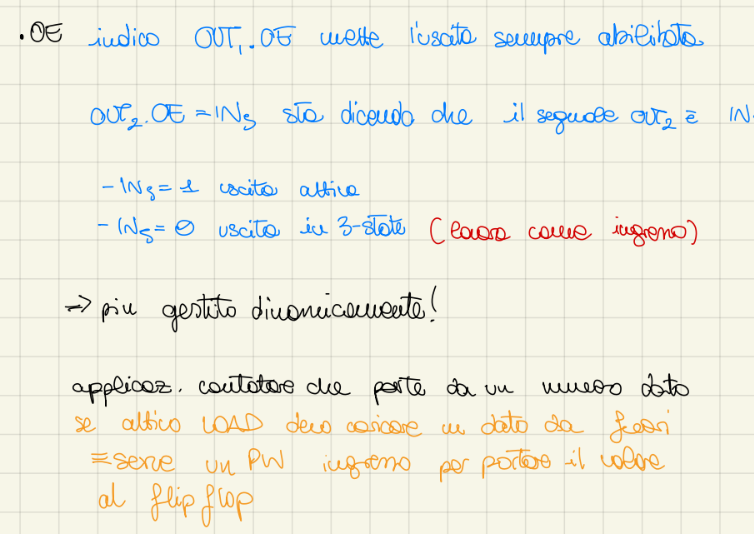 .OE indica OUT₁.OE mette l'usata sempre abilitata
OUT₂.OE = IN₅ sta dicendo che il segnale OUT₂ è IN
- IN₅ = 1 uscita attiva
- IN₅ = 0 uscita in 3-state (lavora come ingresso)
→ pin gestito dinamicamente!
applicaz. contatore che parte da un numero dato
se attivo LOAD devo caricare un dato da fuori
≡ serve un PIN ingresso per portare il valore
al flip flop